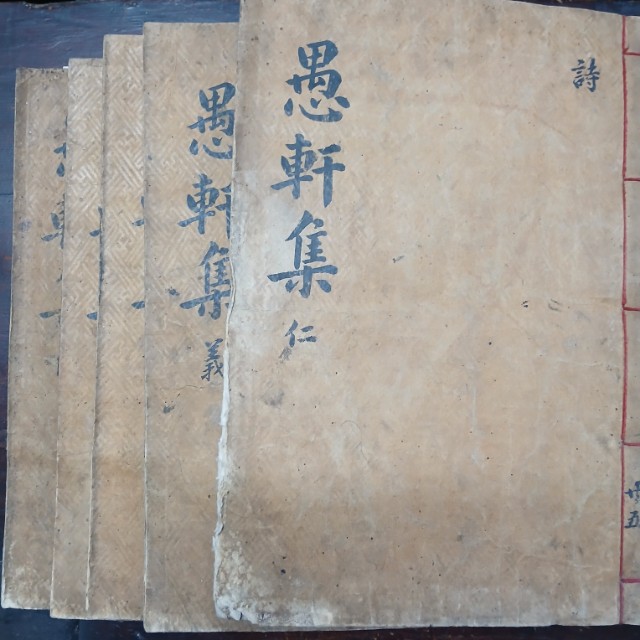 詩
愚軒集 仁
共五
愚軒集 義